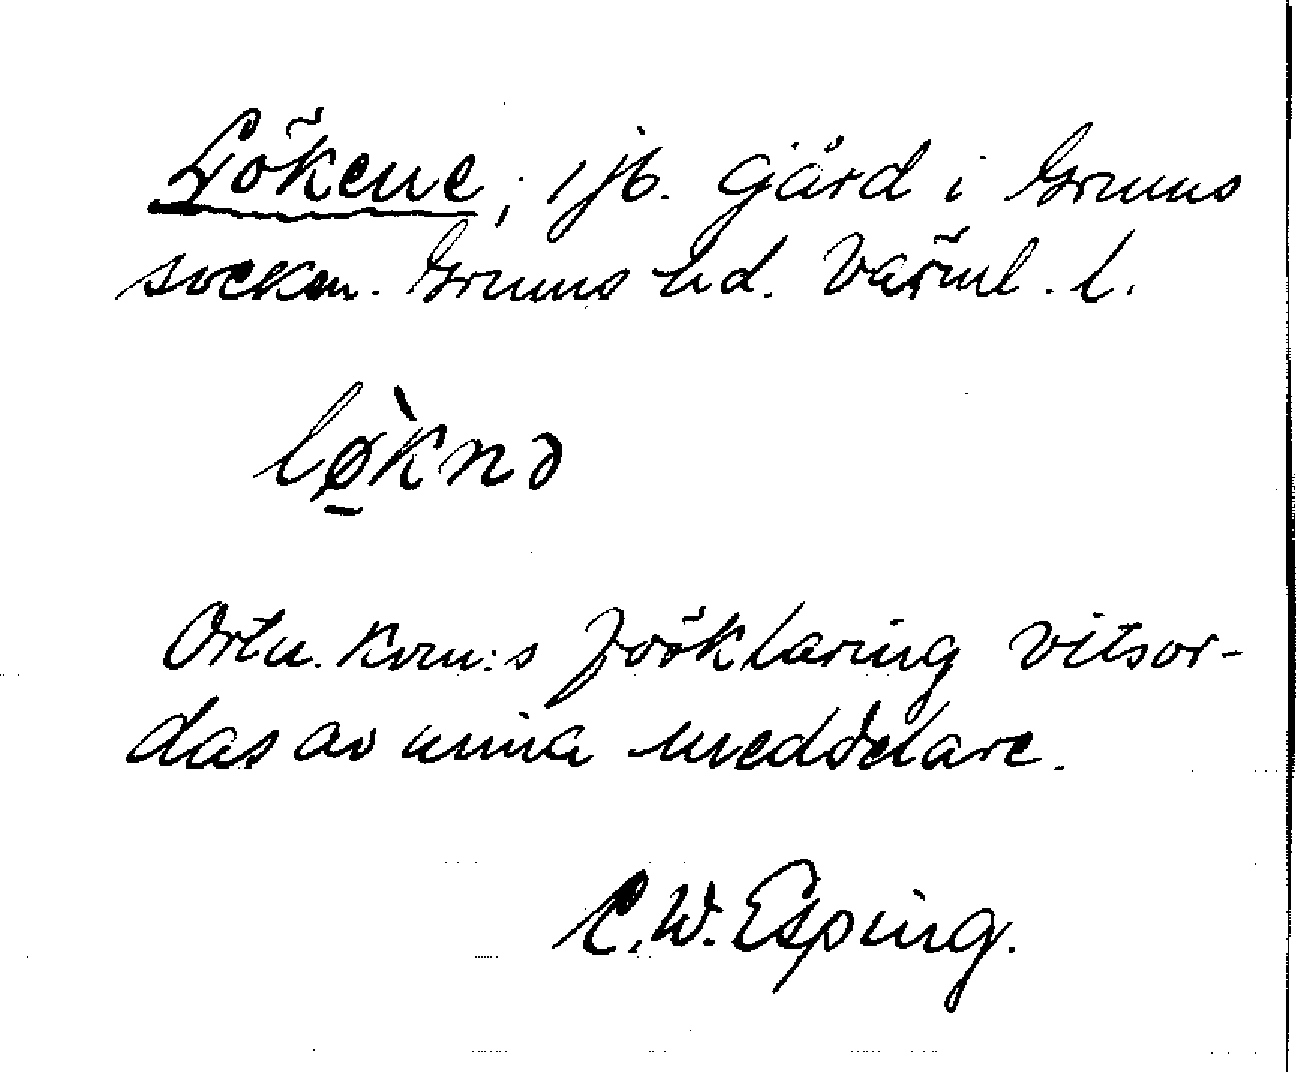 Lökene, i jb. gård i Grums
socken. Grums hd. Värml. l.
lø̱̀knə
Ortn. kom:s förklaring vitsor-
das av mina meddelare.
C. W. Esping.